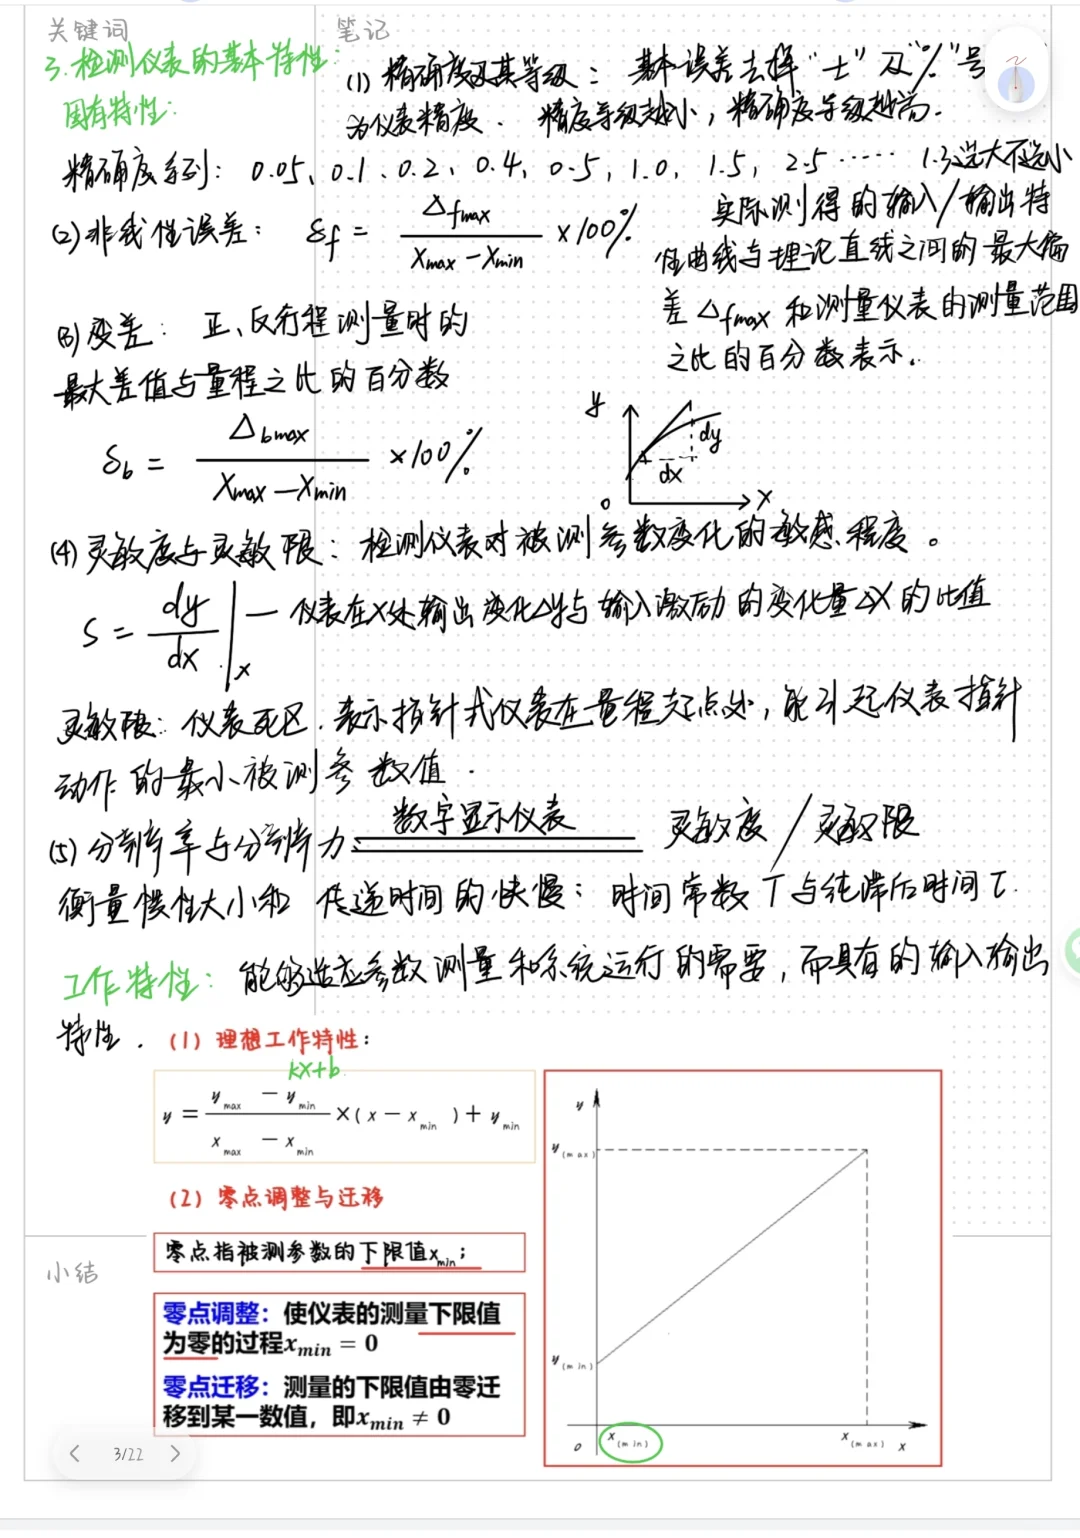 关键词
笔记
3.检测仪表的基本特性:
固有特性:
(1) 精确度及其等级: 基本误差去掉"±"及"%"号
为仪表精度. 精度等级越小,精确度等级越高.
精确度系列: 0.05、0.1、0.2、0.4、0.5、1.0、1.5、2.5…… 1.3选大不选小
(2)非线性误差: δf = Δfmax / (Xmax-Xmin) ×100%
实际测得的输入/输出特
性曲线与理论直线之间的最大偏
差Δfmax和测量仪表的测量范围
之比的百分数表示.
(3)变差: 正、反行程测量时的
最大差值与量程之比的百分数
δb = Δbmax / (Xmax-Xmin) ×100%
y
dy
dx
0
X
(4)灵敏度与灵敏限: 检测仪表对被测参数变化的敏感程度。
S = dy/dx |x — 仪表在X处输出变化Δy与输入激励的变化量ΔX的比值
灵敏限: 仪表死区. 表示指针式仪表在量程起点处,能引起仪表指针
动作的最小被测参数值.
(5)分辨率与分辨力: 数字显示仪表 灵敏度/灵敏限
衡量惯性大小和传递时间的快慢: 时间常数T与纯滞后时间τ.
工作特性: 能够适应参数测量和系统运行的需要,而具有的输入输出
特性.
(1)理想工作特性:
kx+b
y = (y max - y min) / (x max - x min) ×(x - x min)+ y min
(2)零点调整与迁移
零点指被测参数的下限值xmin;
零点调整:使仪表的测量下限值
为零的过程xmin = 0
零点迁移:测量的下限值由零迁
移到某一数值,即xmin ≠ 0
y
y(max)
y(min)
o
x(min)
x(max)
x
小结
3/22